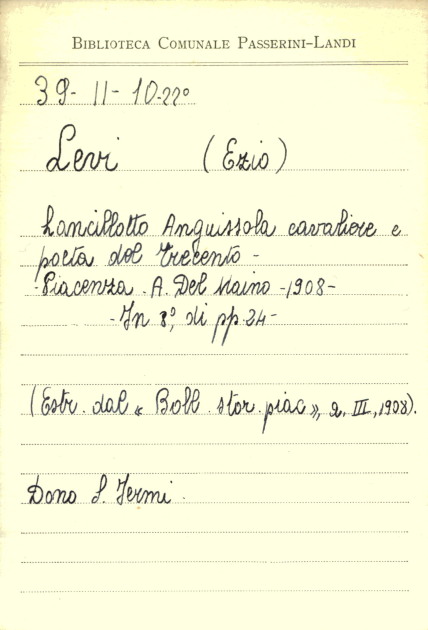 BIBLIOTECA COMUNALE PASSERINI-LANDI
39- II- 10-22°
Levi (Ezio)
Lancillotto Anguissola cavaliere e
poeta del Trecento -
- Piacenza. A. Del Maino - 1908 -
- In 8°, di pp. 24 -
(Estr. dal « Boll. stor. piac », a. III, 1908).
Dono S. Fermi.